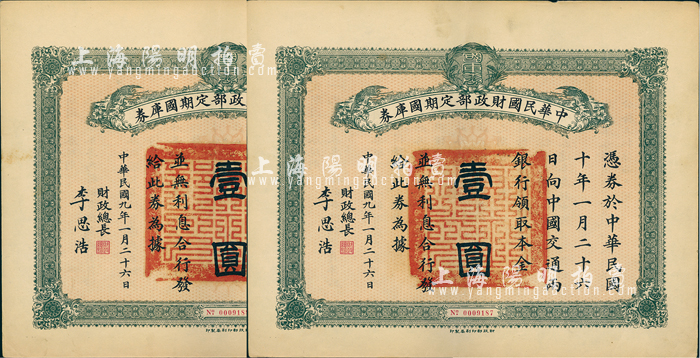 中華民國財政部定期國庫券
憑券於中華民國
十年一月二十六
日向中國交通兩
銀行領取本金
壹圓
並無利息合行發
給此券為據
財政總長
李思浩
中華民國九年一月二十六日
No 0009187
財政部印刷局製印
政部定期國庫券
壹圓
並無利息合行發
給此券為據
財政總長
李思浩
中華民國九年一月二十六日
No 000918
上海陽明拍賣
www.yangmingauction.com
上海陽明拍賣
www.yangmingauction.com
上海陽明拍賣
www.yangmingauction.com